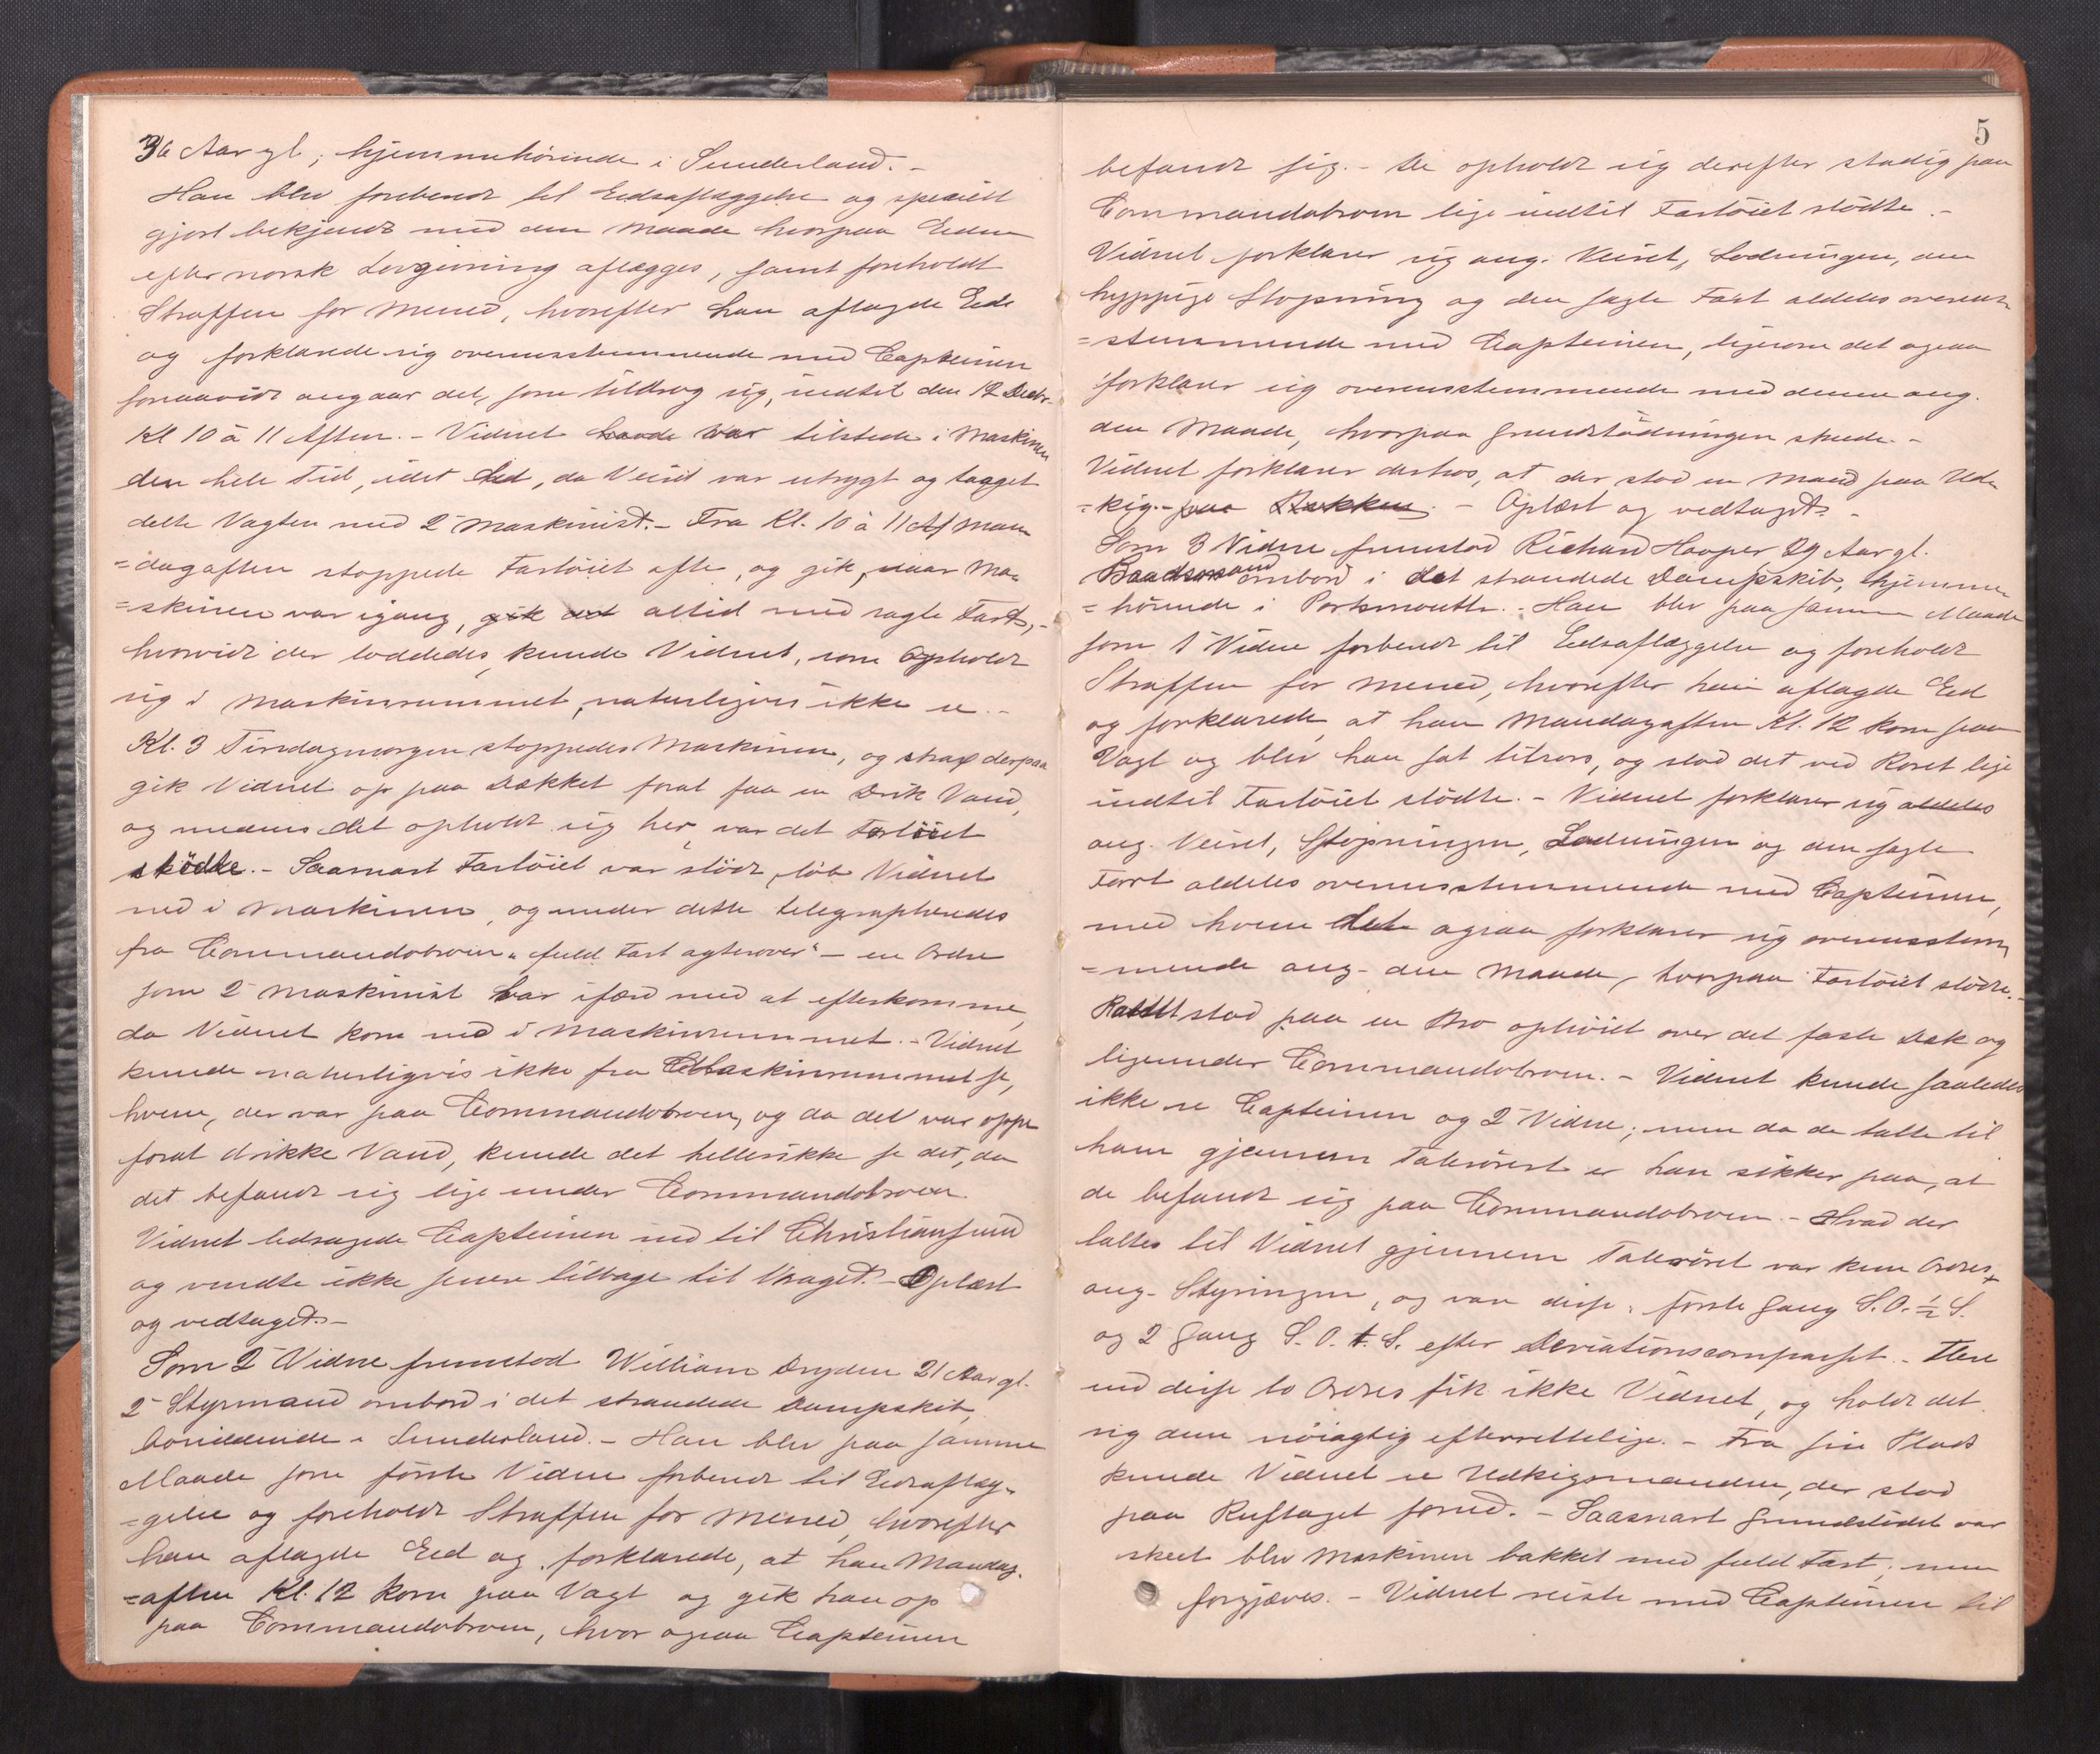 36 Aar gl, hjemmehörende i Sunderland. -
Han blev forberedt til Edsaflæggelse og specielt
gjort bekjendt med den Maade hvorpaa Eden
efter norsk Lovgivning aflægges, samt foreholdt
Straffen for Mened, hvorefter han aflagde Ed
og forklarede sig overensstemmende med Capteinen
forsaavidt angaar det, som tildrog sig, indtil den 12 Decbr.
Kl 10 à 11 Aften. - Vidnet havde var tilstede i Maskinen
den hele Tid, idet det, da Veiret var utrygt og tagget
delte Vagten med 2 Maskinist. - Fra Kl. 10 à 11 Af Man
=dagaften stoppede Fartöiet ofte, og gik, naar Ma=
=skinen var igang, gik det altid med sagte Fart, -
hvorvidt der loddedes, kunde Vidnet, som opholdt
sig i Maskinrummet, naturligvis ikke se. -
Kl. 3 Tirsdagmorgen stoppedes Maskinen, og strax derpaa
gik Vidnet op paa Dækket forat faa en Drik Vand,
og medens det opholdt sig her, var det Fartöiet
stödte. - Saasnart Fartöiet var stödt, löb Vidnet
ned i Maskinen, og under dette telegrapheredes
fra Commandobroen "fuld Fart agterover" - en Ordre
som 2 Maskinist var ifærd med at efterkomme,
da Vidnet kom ned i Maskinrummet. - Vidnet
kunde naturligvis ikke fra Maskinrummet se,
hvem, der var paa Commandobroen, og da det var oppe
forat drikke Vand, kunde det heller ikke se det, da
det befandt sig lige under Commandobroen.
Vidnet ledsagede Capteinen ind til Christiansund
og vendte ikke senere tilbage til Vraget. - Oplæst
og vedtaget. -
Som 2 Vidne fremstod William Dryden 21 Aar gl.
2 Styrmand ombord i det strandede Dampskib,
boende i Sunderland. - Han blev paa samme
Maade som förste Vidne forberedt til Edsaflæg=
=gelse og foreholdt Straffen for Mened, hvorefter
han aflagde Ed og forklarede, at han Mandag
=aften Kl. 12 kom paa Vagt og gik han op
paa Commandobroen, hvor ogsaa Capteinen
5
befandt sig. - De opholdt sig derefter stadig paa
Commandobroen lige indtil Fartöiet stödte. -
Vidnet forklarer sig ang. Veiret, Lodningen, den
hyppige Stopning og den sagte Fart aldeles overens=
=stemmende med Capteinen, ligesom det ogsaa
forklarer sig overensstemmende med denne ang.
den Maade, hvorpaa Grundstödningen skede. -
Vidnet forklarer derhos, at der stod en Mand paa Ud=
=kig. - paa Bakken. - Oplæst og vedtaget. -
Som 3 Vidne fremstod Richard Hooper 29 Aar gl.
Baadsmand ombord i det strandede Dampskib, hjemme
=hörende i Portsmouth. - Han blev paa samme Maade
som 1 Vidne forberedt til Edsaflæggelse og foreholdt
Straffen for Mened, hvorefter han aflagde Ed
og forklarede, at han Mandagaften Kl. 12 kom paa
Vagt og blev han sat tilrors, og stod det ved Roret lige
indtil Fartöiet stödte. - Vidnet forklarer sig aldeles
ang. Veiret, Stopningen, Lodningen og den sagte
Fart aldeles overensstemmende med Capteinen,
med hvem det ogsaa forklarer sig overensstem=
=mende ang. den Maade, hvorpaa Fartöiet stödte. -
Rattet stod paa en Bro ophöiet over det faste Dæk og
lige under Commandobroen. - Vidnet kunde saaledes
ikke se Capteinen og 2 Vidne; men da de talte til
ham gjennem Talerörert er han sikker paa, at
de befandt sig paa Commandobroen. - Hvad der
taltes til Vidnet gjennem Taleröret var kun Ordres
ang. Styringen, og var disse: förste Gang S.O. ½ S.
og 2 Gang S.O. t. S. efter Deviationscompasset. - Flere
end disse to Ordres fik ikke Vidnet, og holdt det
sig dem nöiagtig efterrettelige. - Fra sin Plads
kunde Vidnet se Udkigsmanden, der stod
paa Ruftaget forud. - Saasnart Grundstödet var
skeet blev Maskinen bakket med fuld Fart; men
forgjæves. - Vidnet reiste med Capteinen til